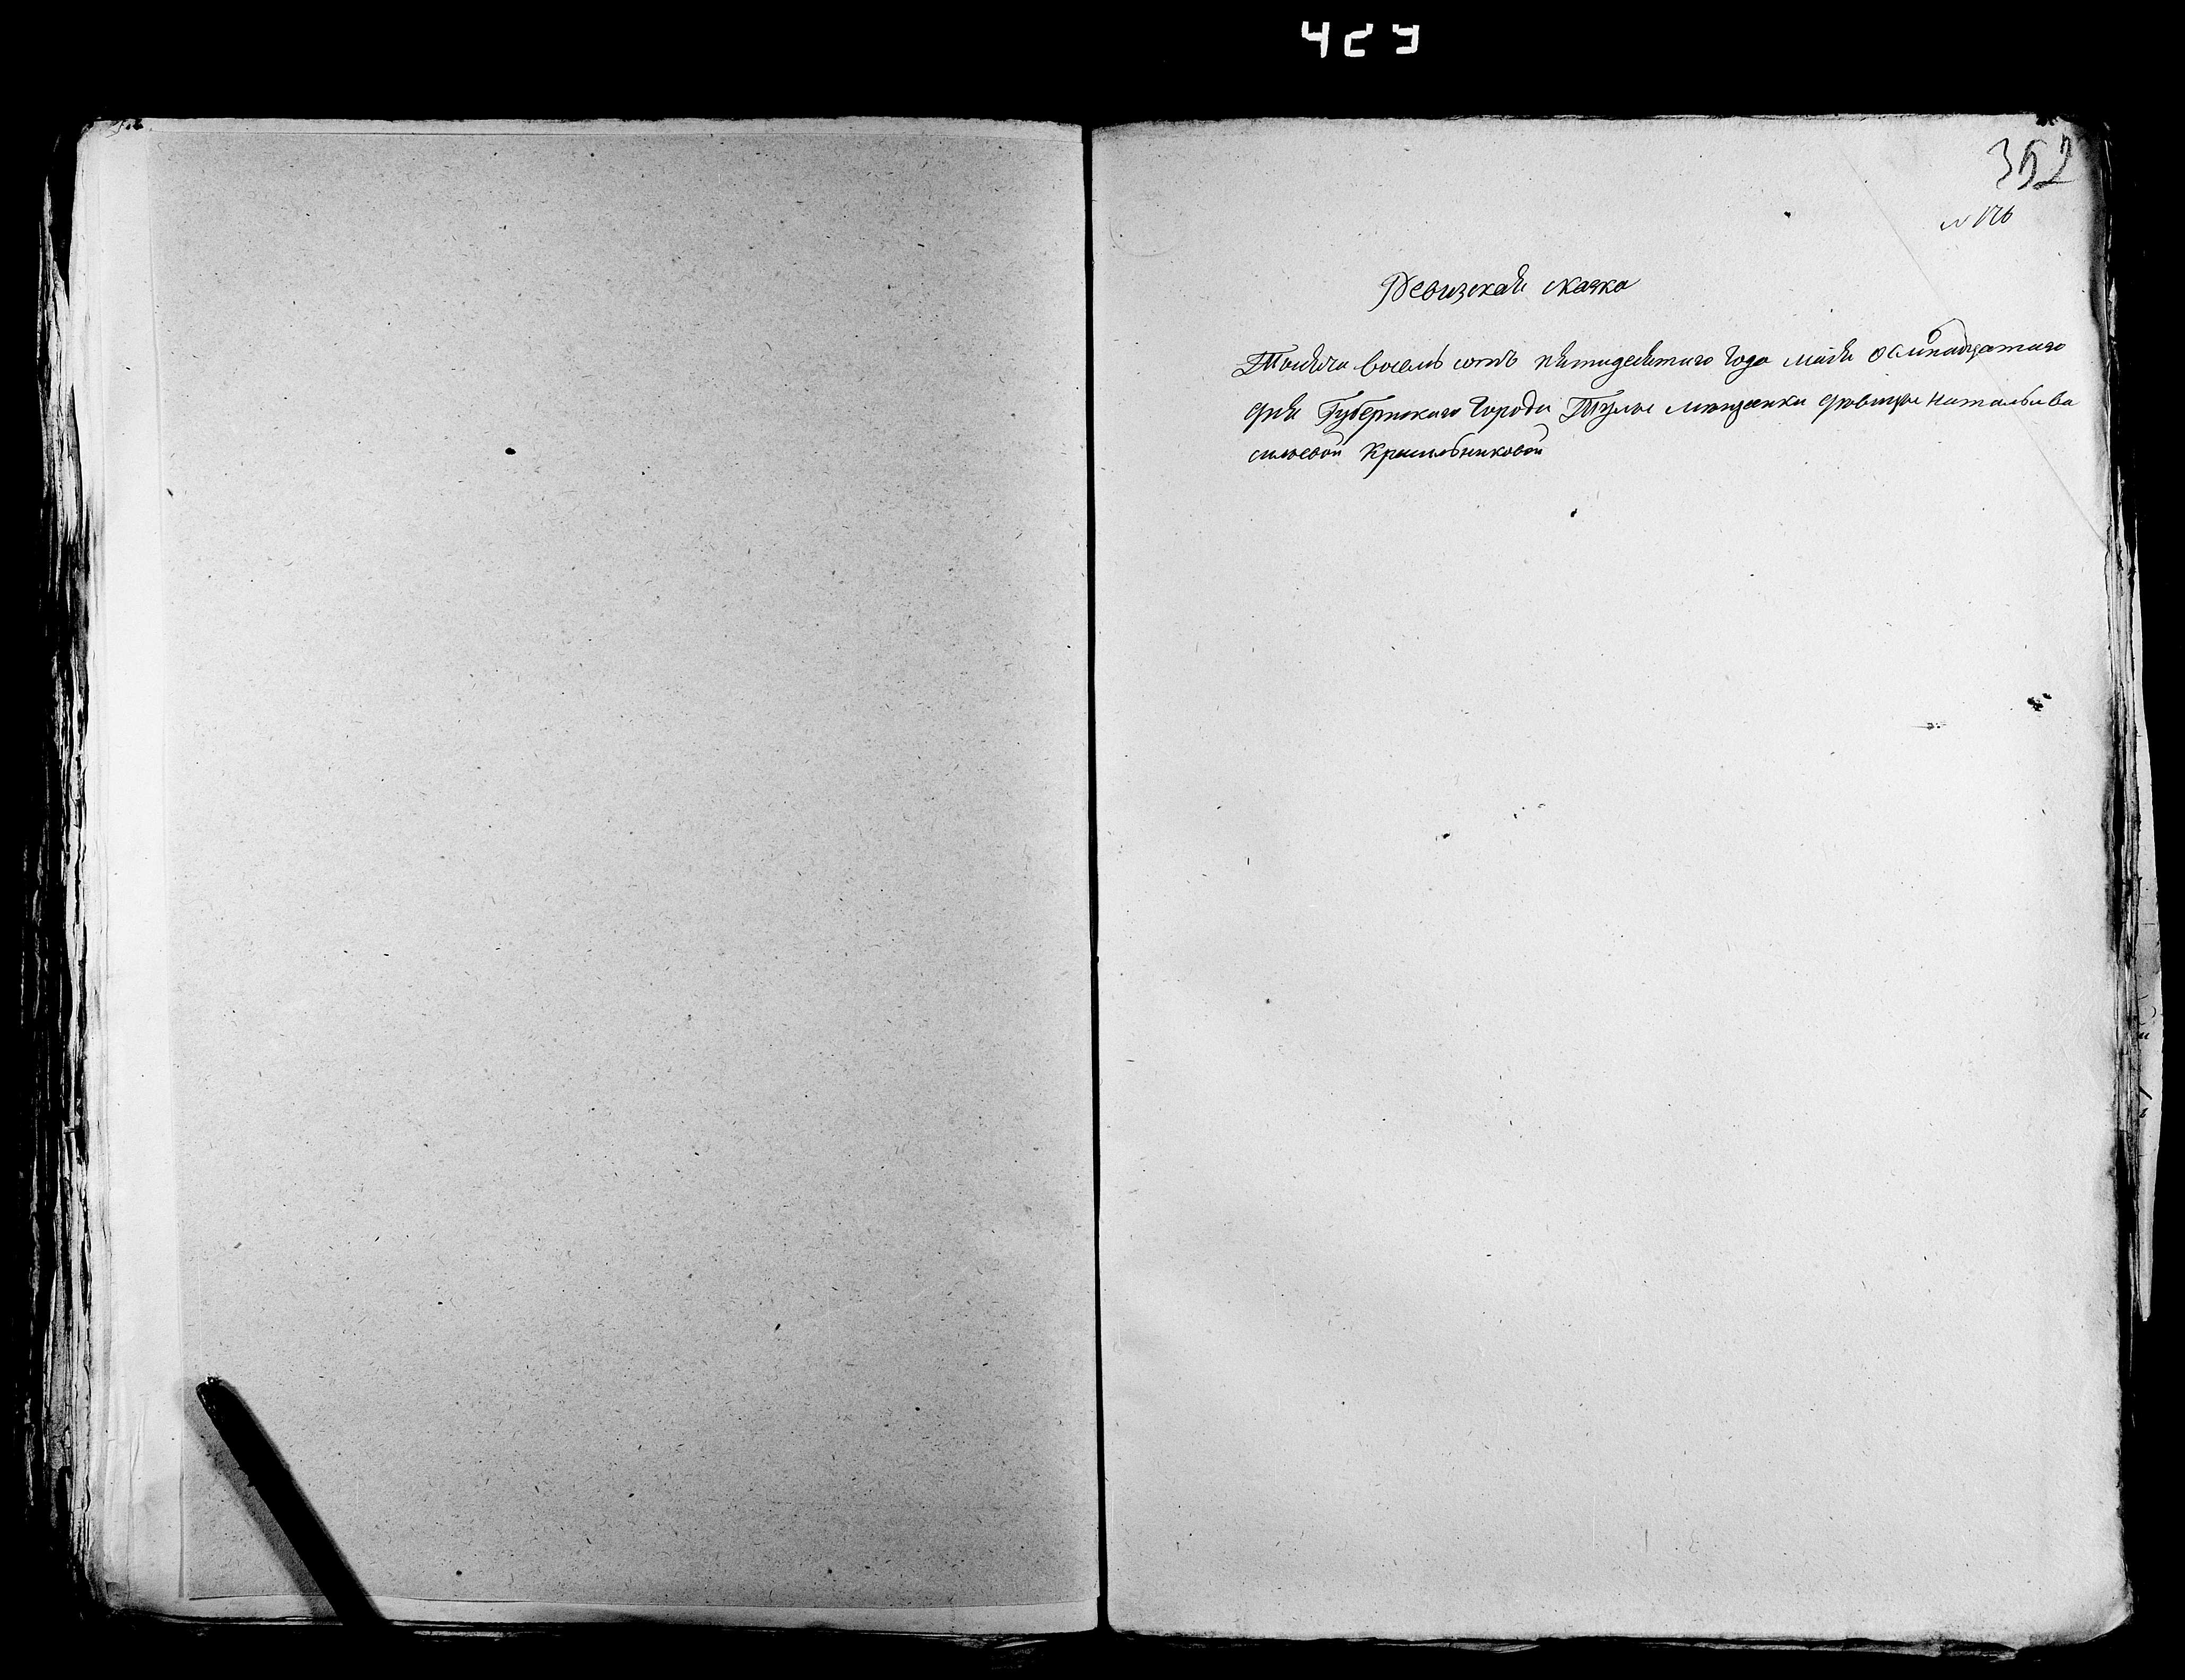 423
352
№ 176
Ревизская сказка
Тысяча восемь сотъ пятидесятаго Года маія осмнадцатаго
дня Губернскаго Города Тулы мещанки девицы Натальи Ва
сильевой Красильниковой